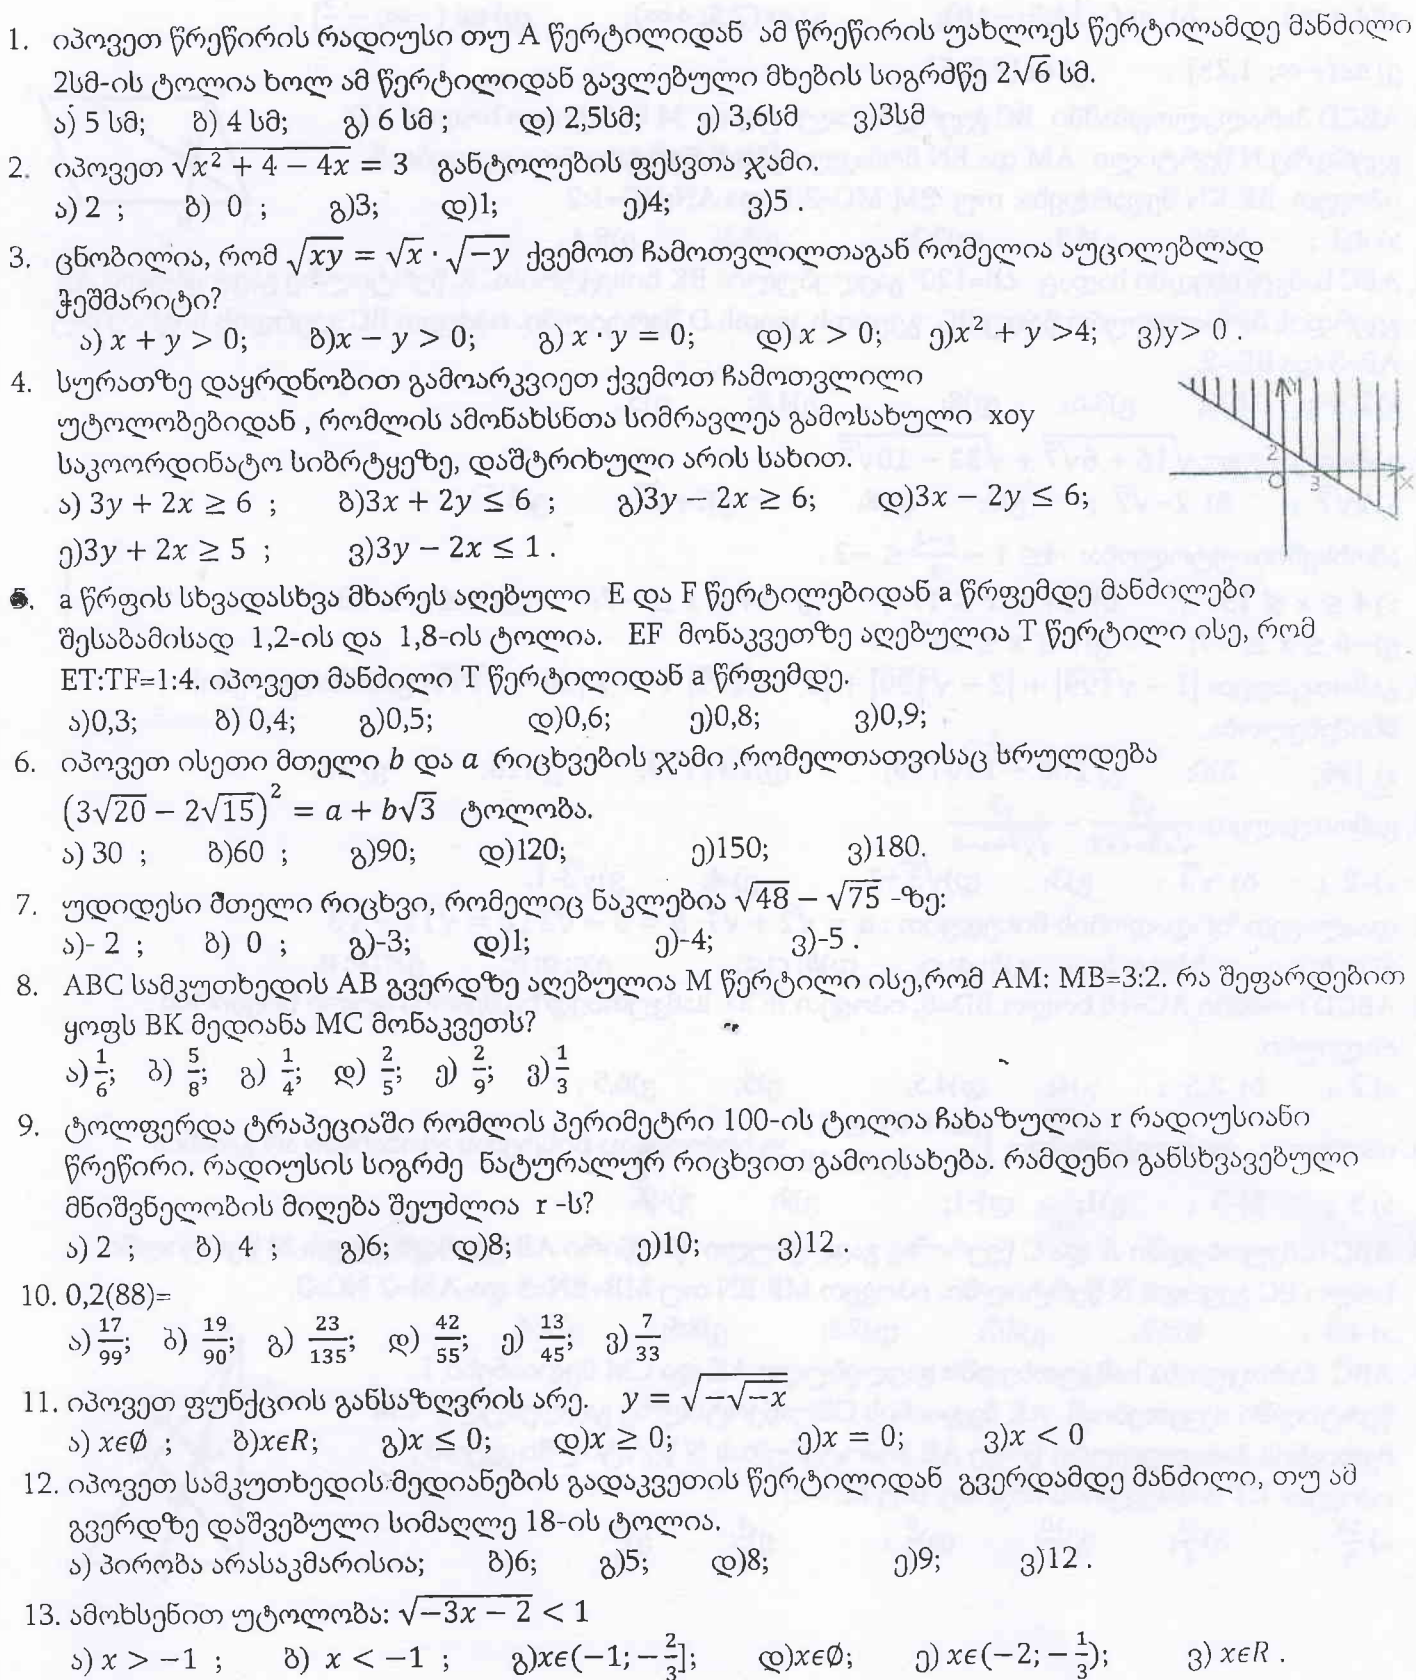 1. იპოვეთ წრეწირის რადიუსი თუ A წერტილიდან ამ წრეწირის უახლოეს წერტილამდე მანძილი
2სმ-ის ტოლია ხოლ ამ წერტილიდან გავლებული მხების სიგრძწე 2√6 სმ.
ა) 5 სმ; ბ) 4 სმ; გ) 6 სმ ; დ) 2,5სმ; ე) 3,6სმ ვ)3სმ
2. იპოვეთ √(x² + 4 − 4x) = 3 განტოლების ფესვთა ჯამი.
ა) 2 ; ბ) 0 ; გ)3; დ)1; ე)4; ვ)5 .
3. ცნობილია, რომ √(xy) = √x · √(−y) ქვემოთ ჩამოთვლილთაგან რომელია აუცილებლად
ჭეშმარიტი?
ა) x + y > 0; ბ)x − y > 0; გ) x · y = 0; დ) x > 0; ე)x² + y >4; ვ)y> 0 .
4. სურათზე დაყრდნობით გამოარკვიეთ ქვემოთ ჩამოთვლილი
უტოლობებიდან , რომლის ამონახსნთა სიმრავლეა გამოსახული xoy
საკოორდინატო სიბრტყეზე, დაშტრიხული არის სახით.
ა) 3y + 2x ≥ 6 ; ბ)3x + 2y ≤ 6 ; გ)3y − 2x ≥ 6; დ)3x − 2y ≤ 6;
ე)3y + 2x ≥ 5 ; ვ)3y − 2x ≤ 1 .
2 O 3 x
5. a წრფის სხვადასხვა მხარეს აღებული E და F წერტილებიდან a წრფემდე მანძილები
შესაბამისად 1,2-ის და 1,8-ის ტოლია. EF მონაკვეთზე აღებულია T წერტილი ისე, რომ
ET:TF=1:4. იპოვეთ მანძილი T წერტილიდან a წრფემდე.
ა)0,3; ბ) 0,4; გ)0,5; დ)0,6; ე)0,8; ვ)0,9;
6. იპოვეთ ისეთი მთელი b და a რიცხვების ჯამი ,რომელთათვისაც სრულდება
(3√20 − 2√15)² = a + b√3 ტოლობა.
ა) 30 ; ბ)60 ; გ)90; დ)120; ე)150; ვ)180.
7. უდიდესი მთელი რიცხვი, რომელიც ნაკლებია √48 − √75 -ზე:
ა)- 2 ; ბ) 0 ; გ)-3; დ)1; ე)-4; ვ)-5 .
8. ABC სამკუთხედის AB გვერდზე აღებულია M წერტილი ისე,რომ AM: MB=3:2. რა შეფარდებით
ყოფს BK მედიანა MC მონაკვეთს?
ა) 1/6; ბ) 5/8; გ) 1/4; დ) 2/5; ე) 2/9; ვ) 1/3
9. ტოლფერდა ტრაპეციაში რომლის პერიმეტრი 100-ის ტოლია ჩახაზულია r რადიუსიანი
წრეწირი. რადიუსის სიგრძე ნატურალურ რიცხვით გამოისახება. რამდენი განსხვავებული
მნიშვნელობის მიღება შეუძლია r -ს?
ა) 2 ; ბ) 4 ; გ)6; დ)8; ე)10; ვ)12 .
10. 0,2(88)=
ა) 17/99; ბ) 19/90; გ) 23/135; დ) 42/55; ე) 13/45; ვ) 7/33
11. იპოვეთ ფუნქციის განსაზღვრის არე. y = √(−√(−x))
ა) xϵ∅ ; ბ)xϵR; გ)x ≤ 0; დ)x ≥ 0; ე)x = 0; ვ)x < 0
12. იპოვეთ სამკუთხედის მედიანების გადაკვეთის წერტილიდან გვერდამდე მანძილი, თუ ამ
გვერდზე დაშვებული სიმაღლე 18-ის ტოლია.
ა) პირობა არასაკმარისია; ბ)6; გ)5; დ)8; ე)9; ვ)12 .
13. ამოხსენით უტოლობა: √(−3x − 2) < 1
ა) x > −1 ; ბ) x < −1 ; გ)xϵ(−1; −2/3]; დ)xϵ∅; ე) xϵ(−2; −1/3); ვ) xϵR .